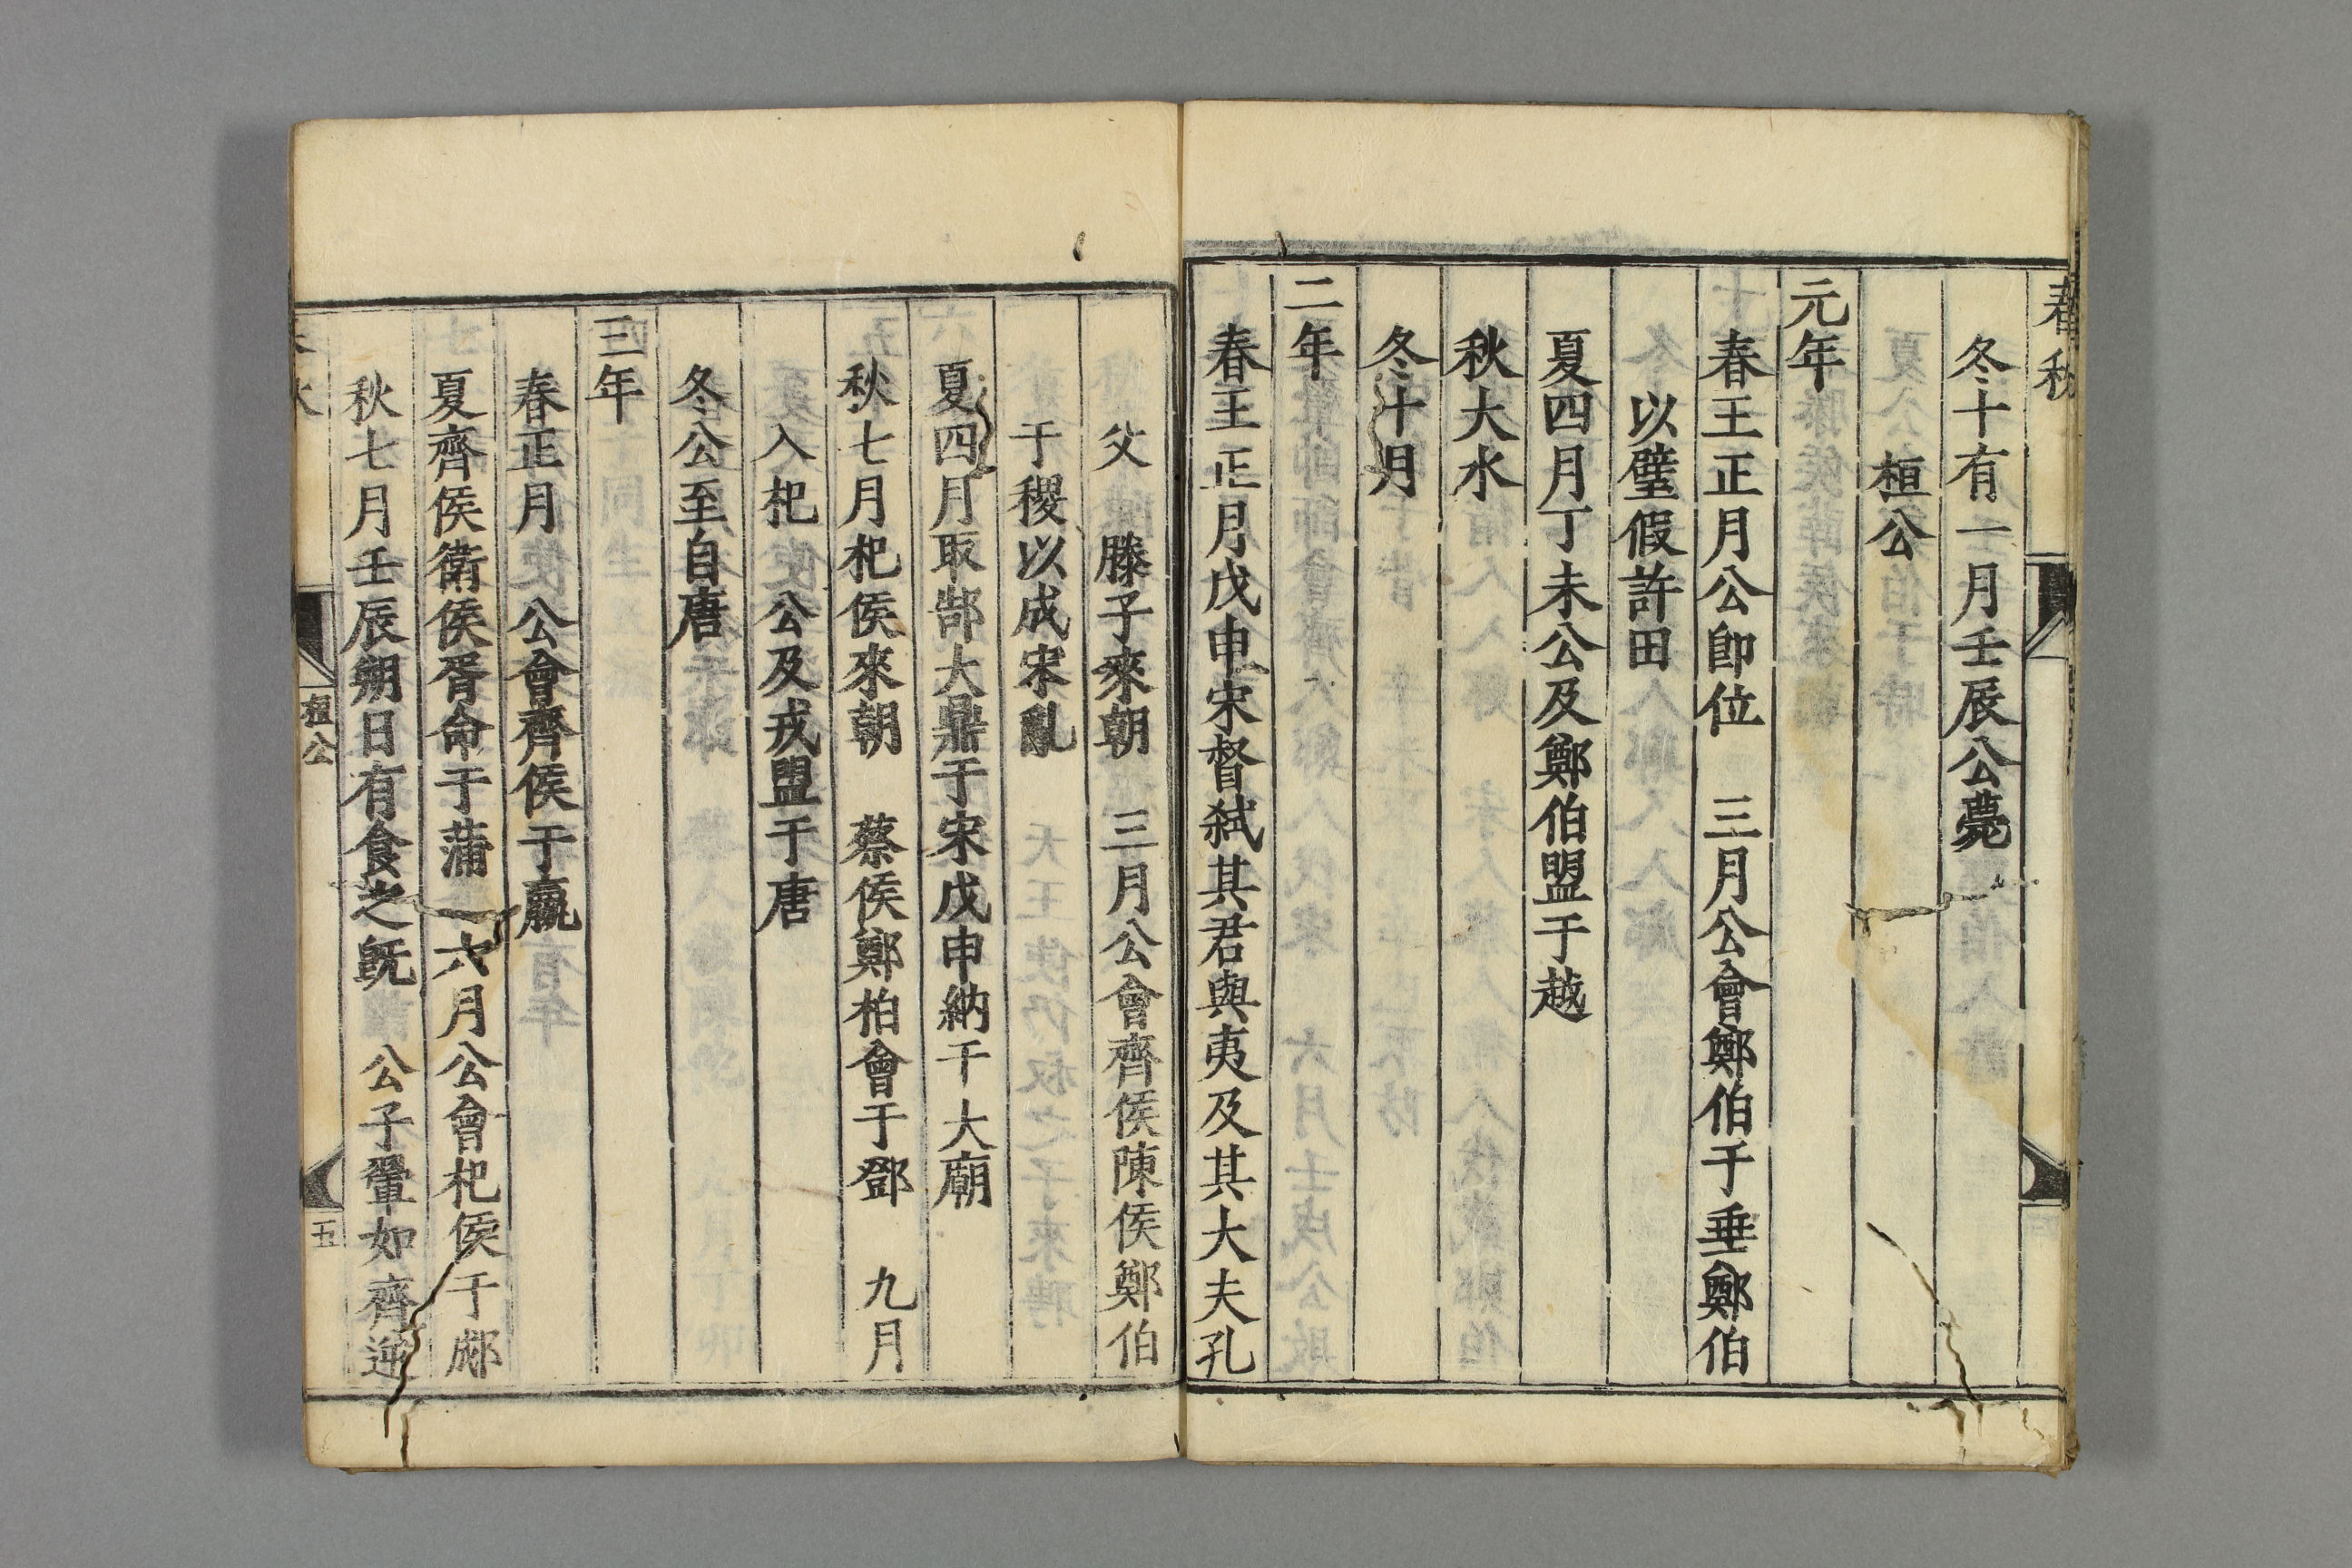 春秋
冬十有一月壬辰公薨
桓公
元年
春王正月公卽位　三月公會鄭伯于垂鄭伯
以璧假許田
夏四月丁未公及鄭伯盟于越
秋大水
冬十月
二年
春王正月戊申宋督弑其君與夷及其大夫孔
父　滕子來朝　三月公會齊侯陳侯鄭伯
于稷以成宋亂
夏四月取郜大鼎于宋戊申納于大廟
秋七月杞侯來朝　蔡侯鄭柏會于鄧　九月
入杞　公及戎盟于唐
冬公至自唐
三年
春正月　公會齊侯于嬴
夏齊侯衛侯胥命于蒲　六月公會杞侯于郕
秋七月壬辰朔日有食之旣　公子翬如齊逆
桓公
五